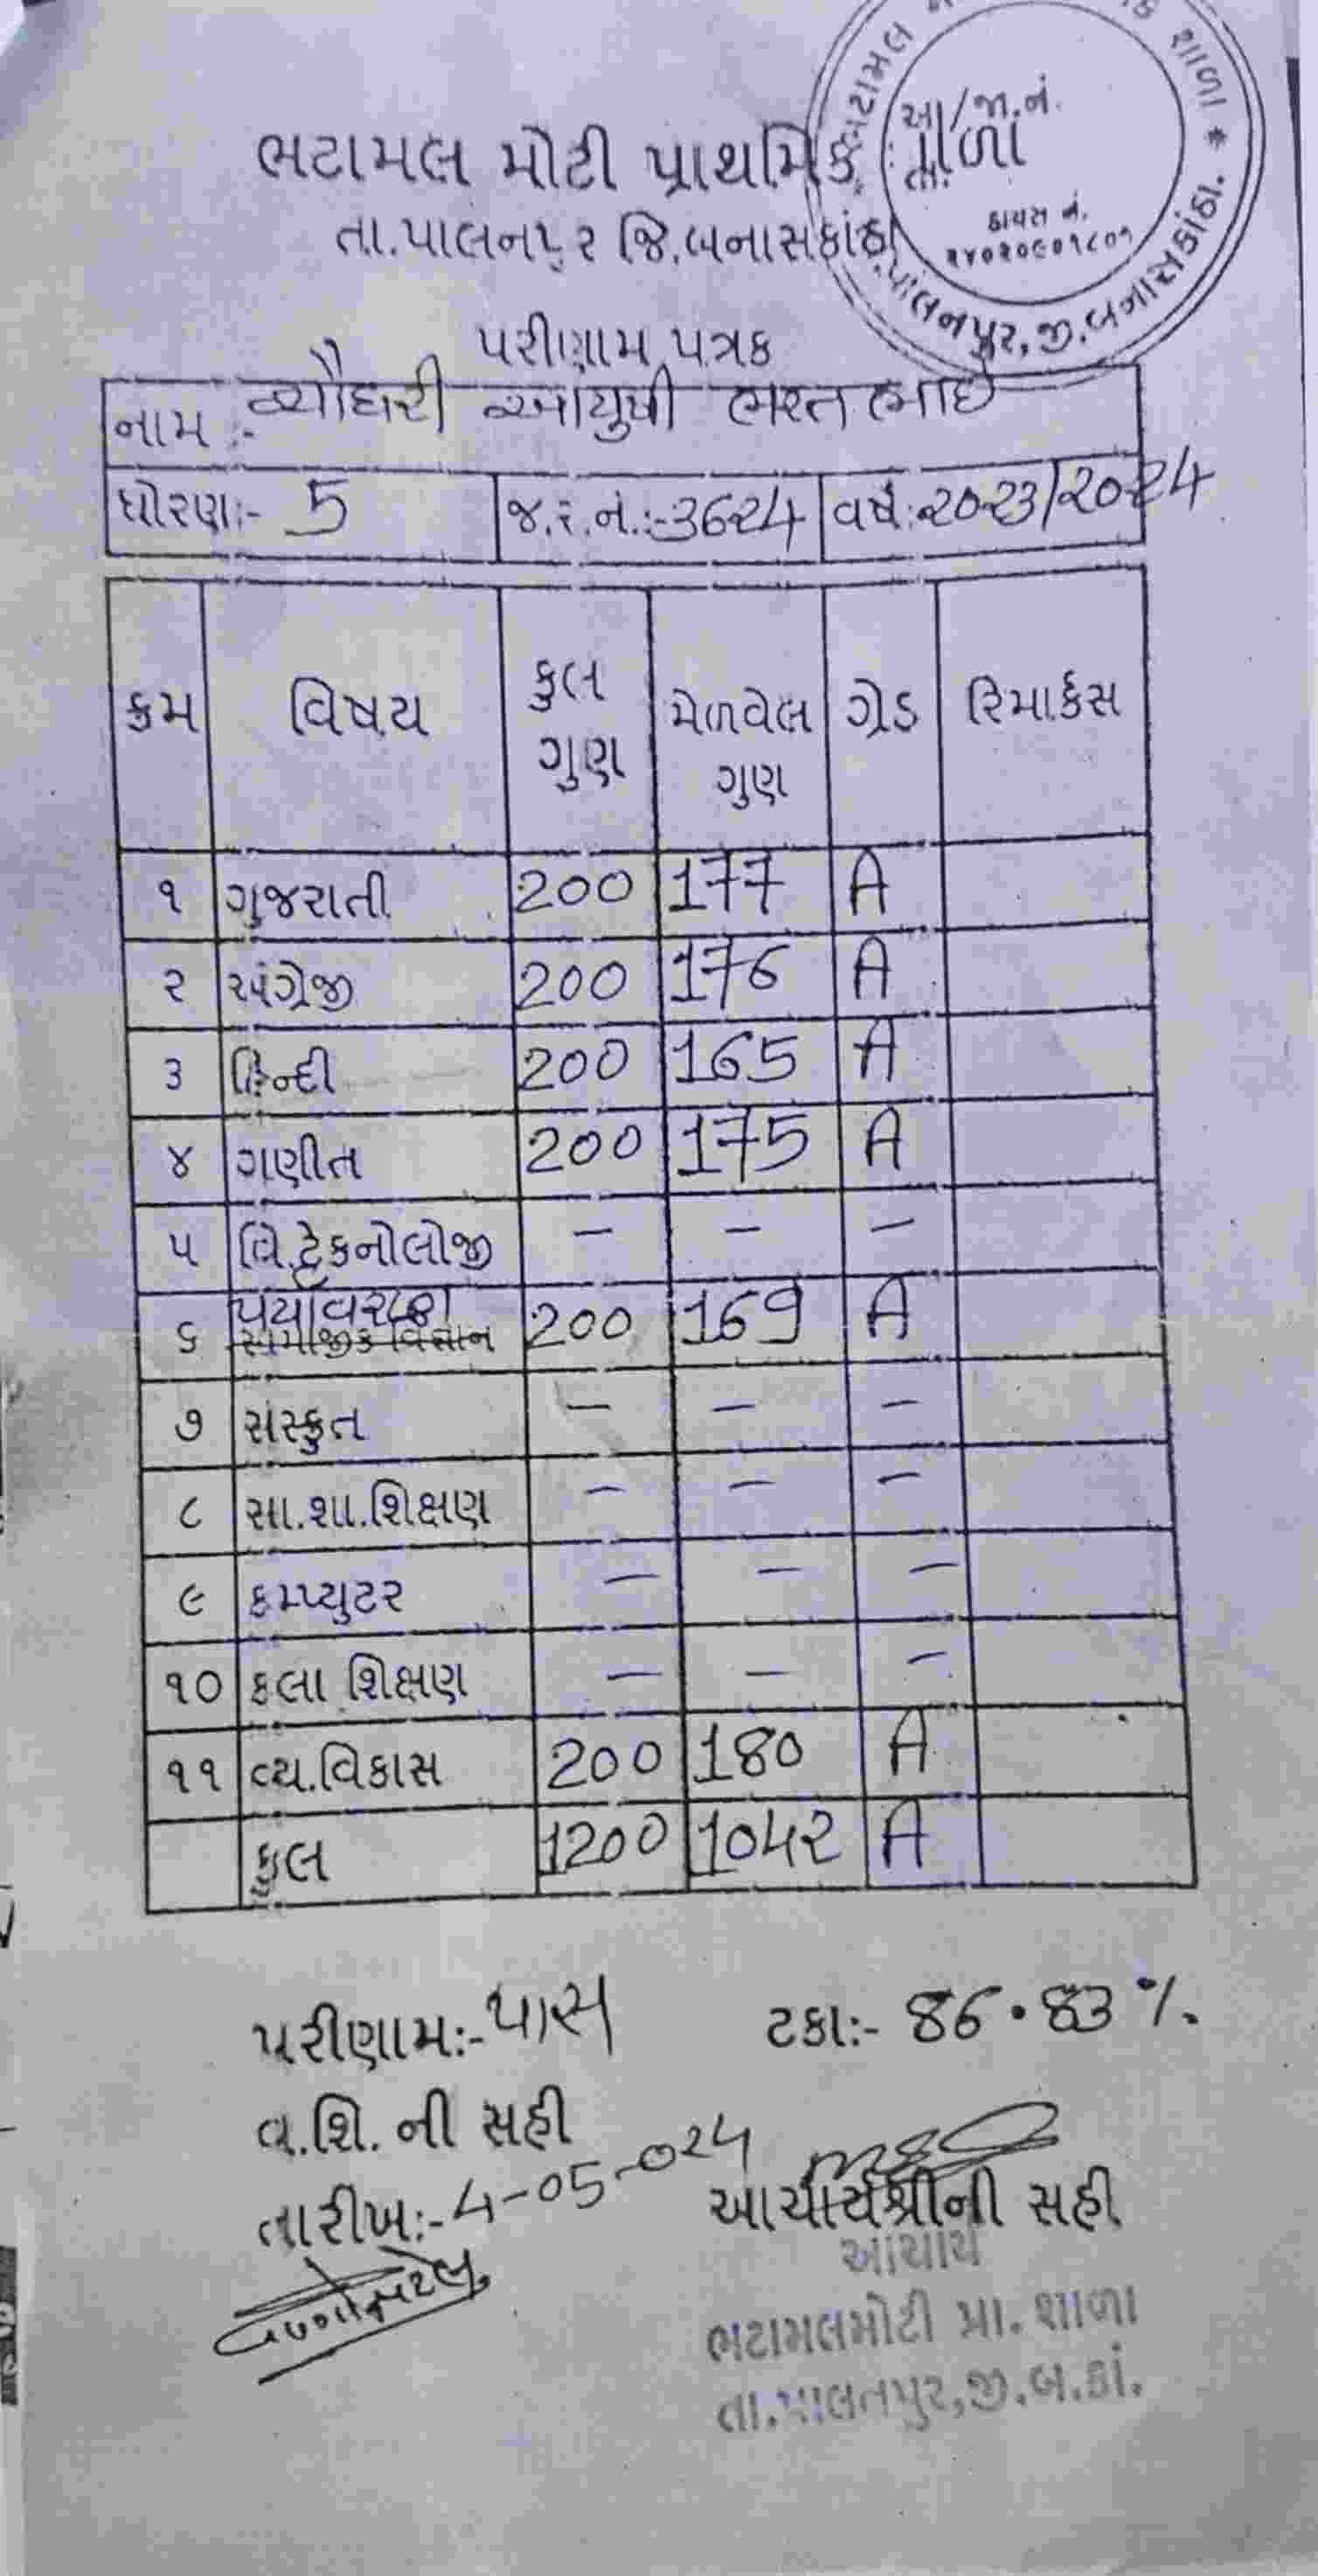 ભટામલ મોટી પ્રાથમિક શાળા
તા.પાલનપુર જિ.બનાસકાંઠા
આ/જા.નં.
તા.
ડાયસ નં.
૨૪૦૨૦૯૦૧૮૦૧
પાલનપુર, જી.બનાસકાંઠા.
પરીણામ પત્રક
નામ :- ચૌધરી આયુષી ભરતભાઈ
ધોરણ:- 5 જ.ર.નં.:-3624 વર્ષ:૨૦૨૩/૨૦૨4
ક્રમ વિષય કુલ ગુણ મેળવેલ ગુણ ગ્રેડ રિમાર્કસ
૧ ગુજરાતી 200 177 A
૨ અંગ્રેજી 200 176 A
૩ હિન્દી 200 165 A
૪ ગણીત 200 175 A
૫ વિ.ટેકનોલોજી – – –
૬ પર્યાવરણ સામાજીક વિજ્ઞાન 200 169 A
૭ સંસ્કૃત – – –
૮ સા.શા.શિક્ષણ – – –
૯ કમ્પ્યુટર – – –
૧૦ કલા શિક્ષણ – – –
૧૧ વ્ય.વિકાસ 200 180 A
કુલ 1200 1042 A
પરીણામ:- પાસ ટકા:- 86.83%
વ.શિ. ની સહી
તારીખ:- 4-05-024 આચાર્યશ્રીની સહી
આચાર્ય
ભટામલમોટી પ્રા. શાળા
તા.પાલનપુર,જી.બ.કાં.